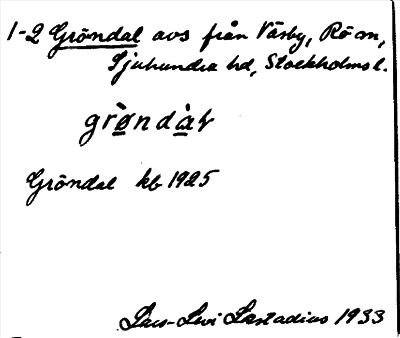 1-2 Gröndal avs från Väsby, Rö sn,
Sjuhundra hd, Stockholms l.
grøndàɫ
Gröndal kb 1925
Lars-Levi Læstadius 1933